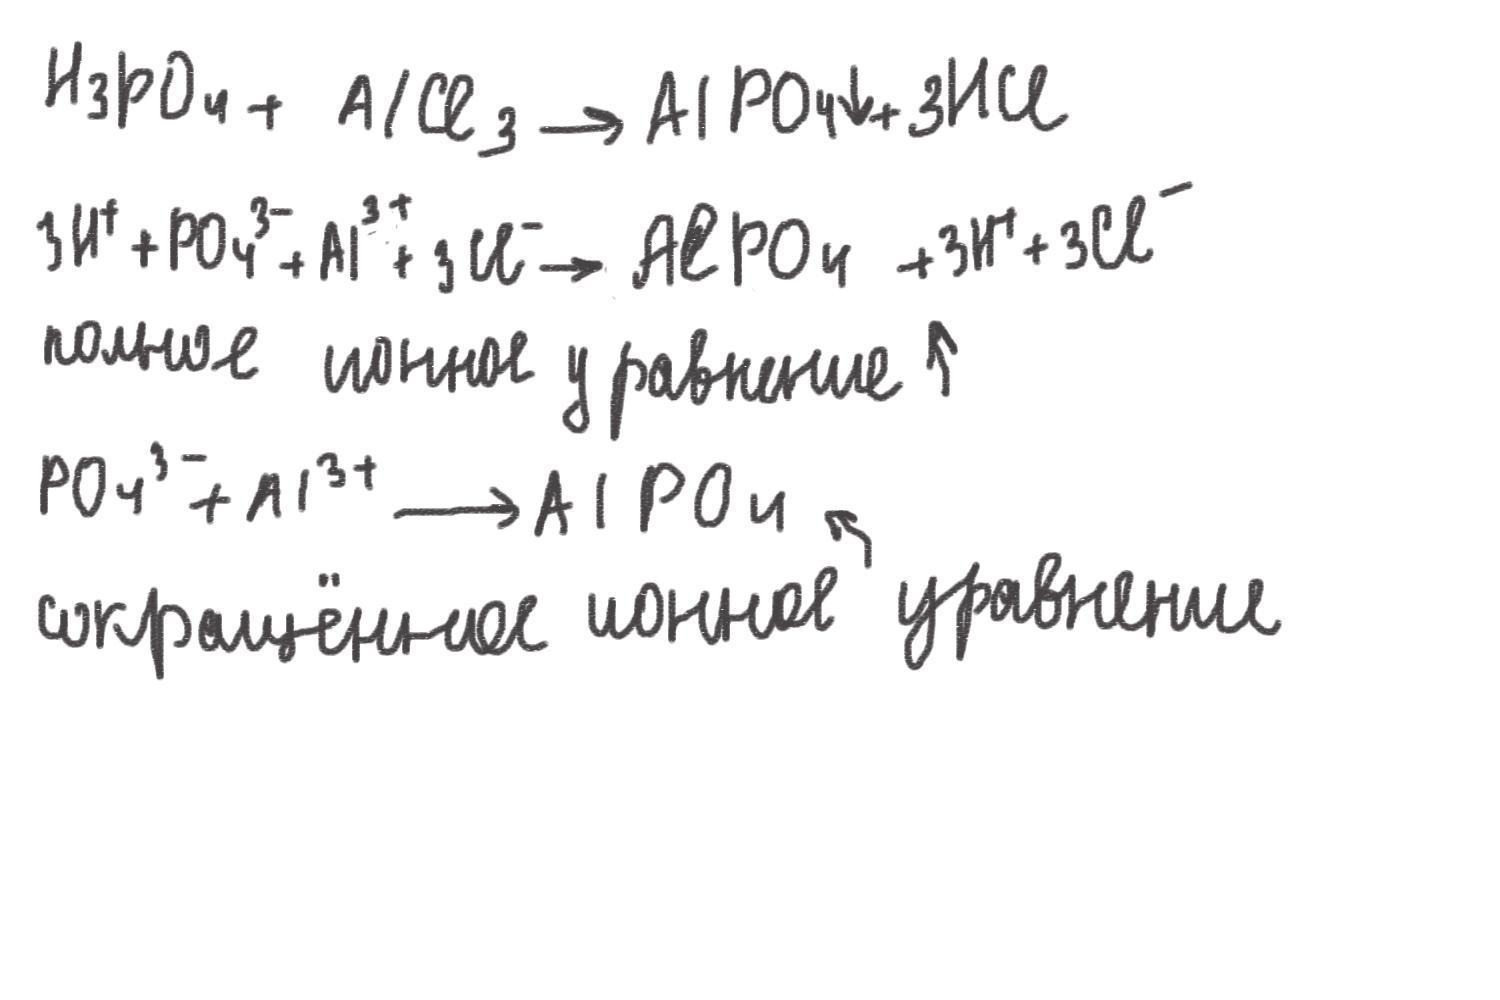 H₃PO₄ + AlCl₃ → AlPO₄↓ + 3HCl
3H⁺ + PO₄³⁻ + Al³⁺ + 3Cl⁻ → AlPO₄ + 3H⁺ + 3Cl⁻
полное ионное уравнение ↑
PO₄³⁻ + Al³⁺ → AlPO₄
сокращённое ионное уравнение